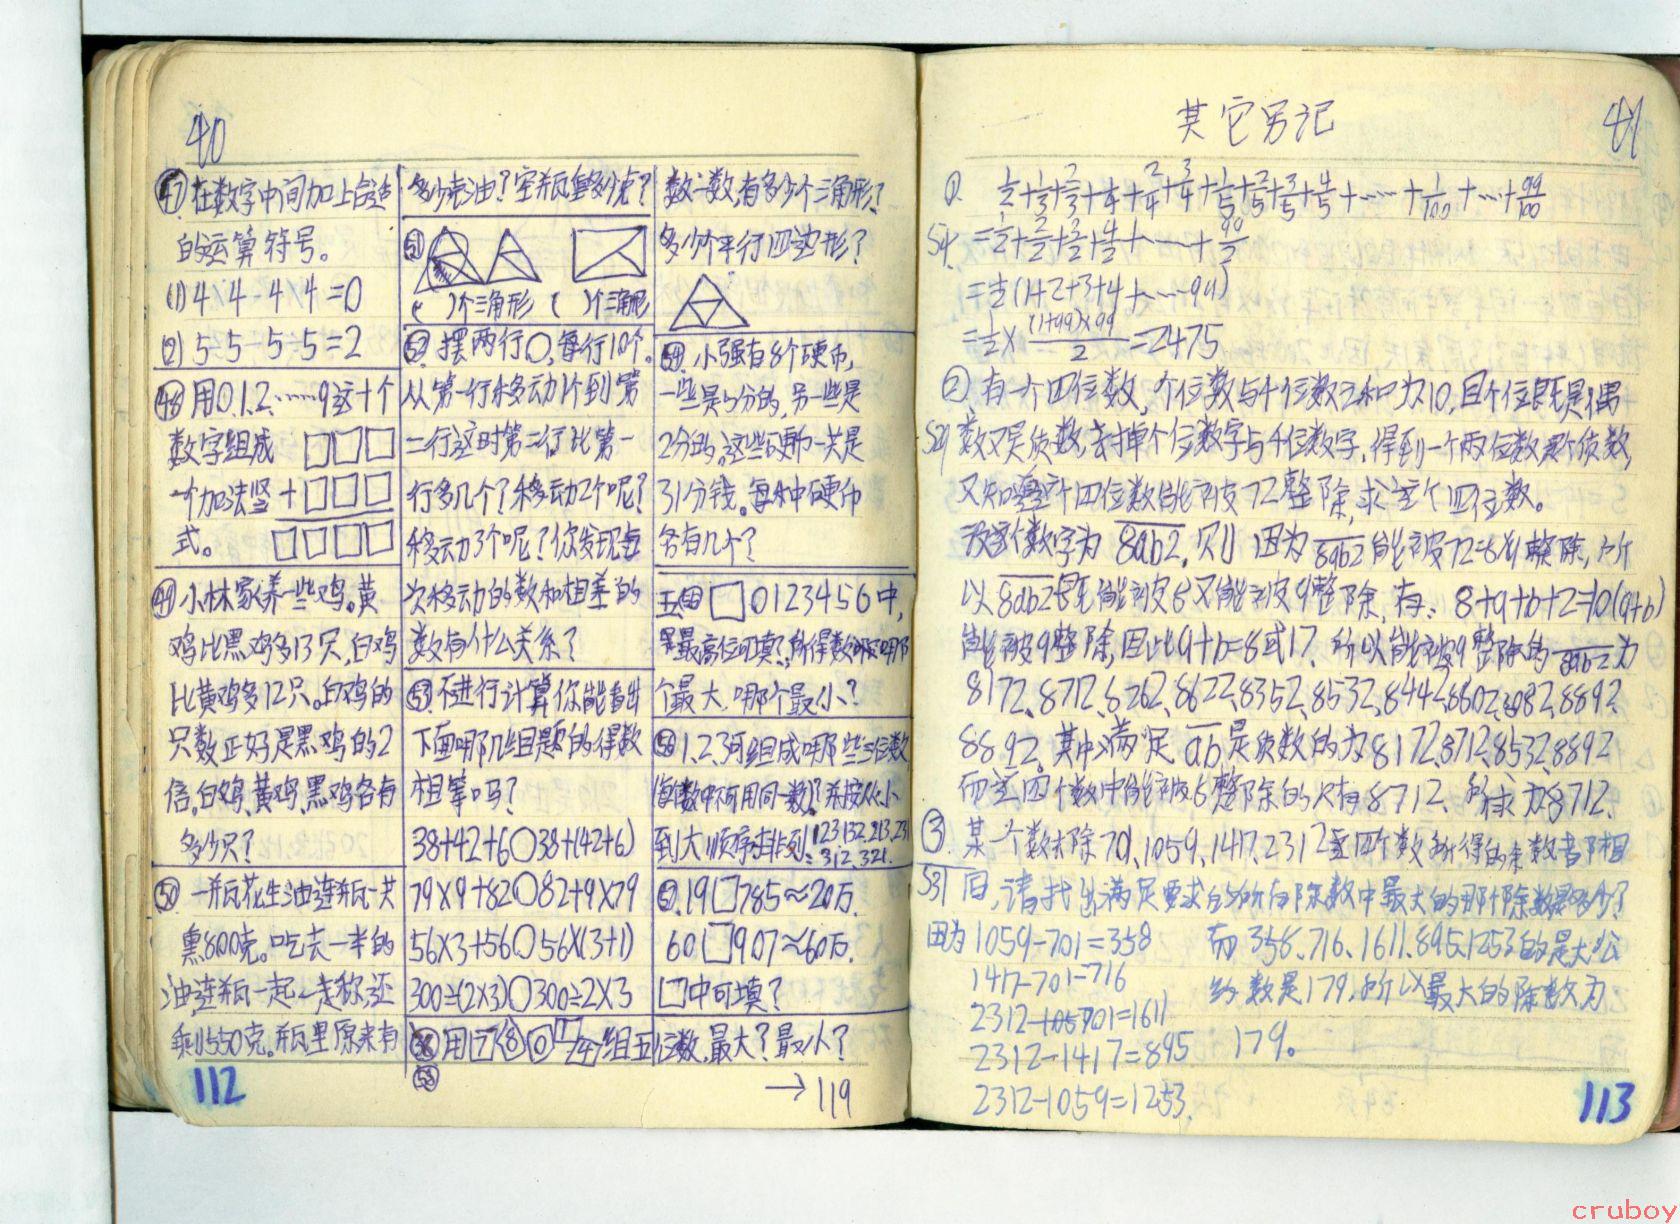 40
㊼ 在数字中间加上合适
的运算符号。
(1) 4 4 4 4 =0
(2) 5 5 5 5 =2
㊽ 用0.1.2.……9这十个
数字组成 □□□
一个加法竖 +□□□
式。 □□□□
㊾ 小林家养一些鸡。黄
鸡比黑鸡多13只,白鸡
比黄鸡多12只。白鸡的
只数正好是黑鸡的2
倍。白鸡、黄鸡、黑鸡各有
多少只?
㊿ 一瓶花生油连瓶一共
重800克。吃去一半的
油,连瓶一起称,还
剩550克。瓶里原来有
112
多少克油?空瓶重多少克?
51
( )个三角形 ( )个三角形
52 摆两行○,每行10个。
从第一行移动1个到第
二行这时第二行比第一
行多几个?移动2个呢?
移动3个呢?你发现每
次移动的数和相差的
数有什么关系?
53 不进行计算你能看出
下面哪几组题的得数
相等吗?
38+42+6○38+(42+6)
79×9+82○82+9×79
56×3+56○56×(3+1)
300÷(2×3)○300÷2×3
用 7 8 0 1 4 组五位数,最大?最小?
58
数一数,有多少个三角形?
多少个平行四边形?
54 小强有8个硬币,
一些是5分的,另一些是
2分的。这些硬币一共是
31分钱。每种硬币
各有几个?
□0123456中,
最高位可填?所得数哪
个最大,哪个最小?
56 1.2.3可组成哪些三位数
(每数中不可用同一数)?并按从小
到大顺序排列 123.132.213.231
312.321.
57. 19□785≈20万.
60□907≈60万.
□中可填?
→119
其它另记
41
①. 1/2+1/3+2/3+1/4+2/4+3/4+1/5+2/5+3/5+4/5+……+1/100+……+99/100
=1/2+2/2+3/2+4/2+……+99/2
=1/2(1+2+3+4+……99)
=1/2×(1+99)×99/2=2475
② 有一个四位数,个位数与千位数之和为10,且个位既是偶
数又是质数,去掉个位数字与千位数字,得到一个两位数是个质数,
又知道这个四位数能被72整除,求这个四位数。
设这个数字为 8ab2,则 因为 8ab2能被72=8×9整除,所
以8ab2既能被8又能被9整除,有: 8+a+b+2=10(a+b)
能被9整除,因此a+b=8或17.所以能被9整除的8ab2为
8172、8712、8262、8622、8352、8532、8442、8802、8082、8892、
8892.其中满足ab是质数的为8172、8712、8532、8892
而这四个数中能被8整除的只有8712、所求为8712.
③ 某一个数去除701、1059、1417、2312这四个数所得的余数都相
同,请找出满足要求的所有除数中最大的那个除数是多少?
因为1059-701=358 而358、716、1611、895、1253的最大公
1417-701=716 约数是179,所以最大的除数为
2312-701=1611
2312-1417=895 179。
2312-1059=1253.
113
cruboy